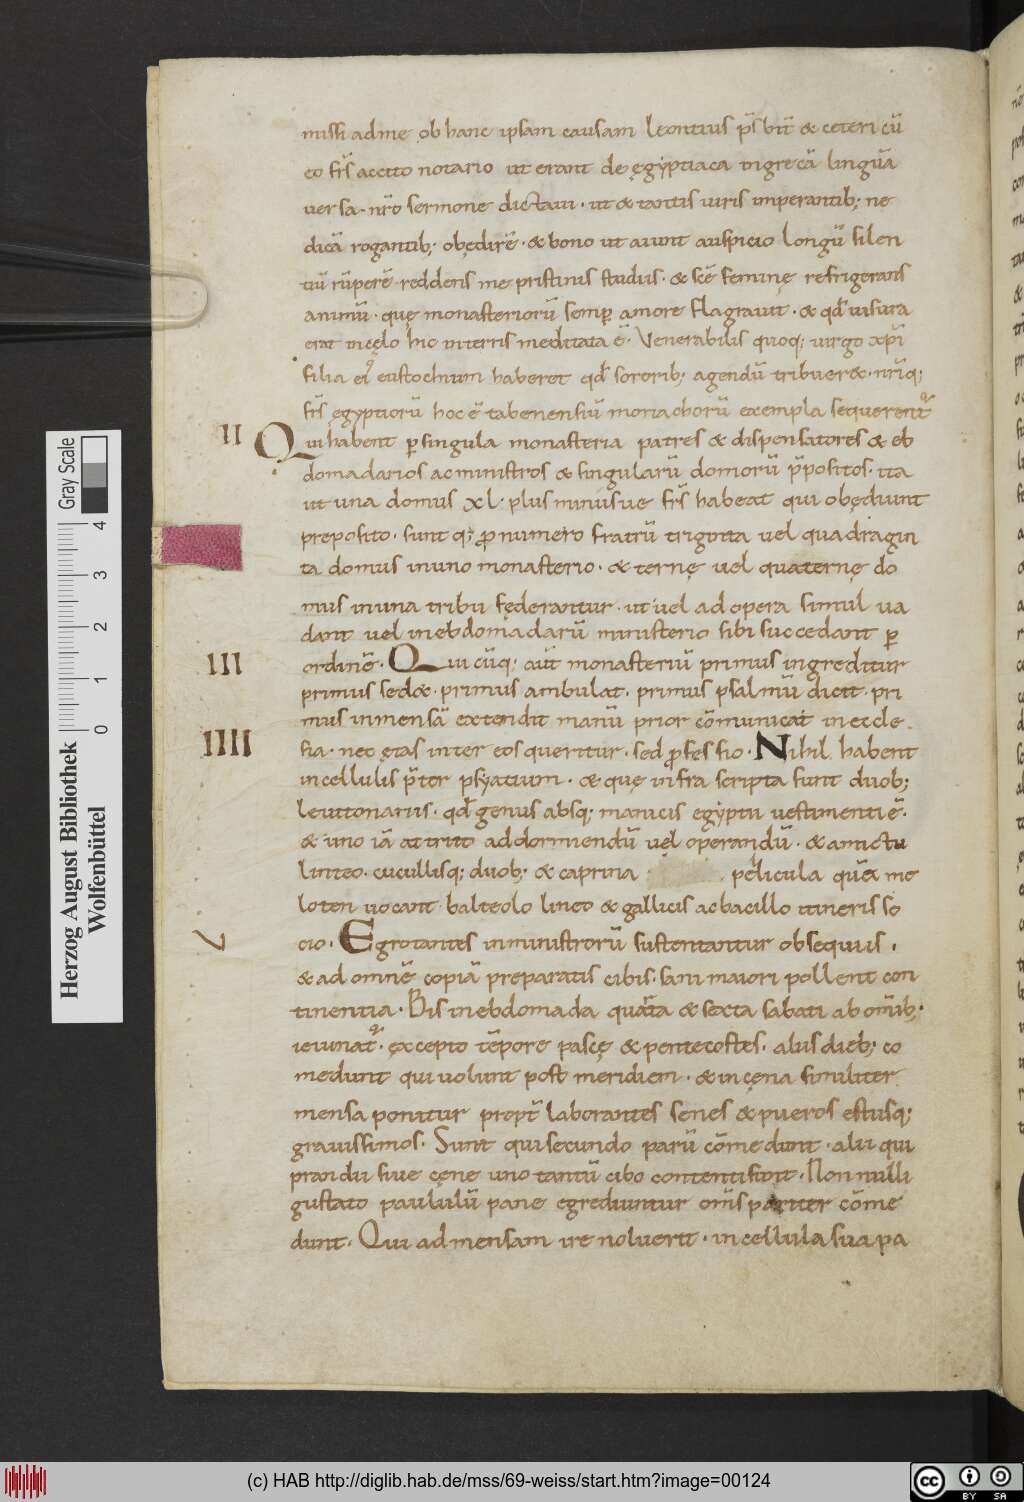 missi adme ob hanc ipsam causam leontius p̄sbit̄ & ceteri cū
eo fr̄s accito notario ut erant de ęgyptiaca ingrecā linguā
uersa nr̄o sermone dictaui · ut & tantis uiris imperantib; ne
dicā rogantib; obędirē · & bono ut aiunt auspicio longū silen
tiū rūperē reddens me pristinis studiis · & scē feminę refrigerans
animū · quę monasteriorū semp amore flagrauit · & qd̄ uisura
erat incęlo hic interris meditata ē · Venerabilis quoq; uirgo xp̄i
filia ei eustochium haberet qd̄ sororib; agendū tribueret · nr̄iq;
fr̄s ęgyptiorū hoc ē tabenensiū monachorū exempla sequerent
II Qui habent p singula monasteria patres & dispensatores & eb
domadarios ac ministros & singularū domorū p̄positos · ita
ut una domus XL · plus minusue fr̄s habeat qui obędiunt
preposito · sunt q; pro numero fratrū triginta uel quadragin
ta domus inuno monasterio · & ternę uel quaternę do
mus inuna tribu fęderantur · ut uel ad opera simul ua
dant uel inebdomadarū ministerio sibi succedant p
III ordinē · Qui cūq; aut̄ monasteriū primus ingreditur
primus sedet · primus ambulat · primus psalmū dicit · pri
mus inmensā extendit manū prior cōmunicat in eccle
IIII sia · nec ętas inter eos queritur · sed professio · Nihil habent
incellulis p̄ter psyatium · & quę infra scripta sunt duob;
leuitonariis · qd̄ genus absq; manicis egyptii uestimenti ē ·
& uno iā attrito ad dormiendū uel operandū · & amictu
linteo · cucullisq; duob; & caprina pellicula quā me
loten uocant · balteolo lineo & gallicis ac bacillo itineris so
cio · Egrotantes inministrorū sustentantur obsequiis ·
& ad omnē copiā preparatis cibis · sani maiori pollent con
tinentia · Bis inebdomada quarta & sexta sabati ab omīb;
ieiunat · excepto tēpore paschę & pentecostes · aliis dieb; co
medunt qui uolunt post meridiem · & in cęna similiter
mensa ponitur propt̄ laborantes senes & pueros estusq;
grauissimos · Sunt qui secundo parū cōmedunt · alii qui
prandii siue cęne uno tantū cibo contenti sunt · Non nulli
gustato paululū pane egrediuntur om̄s pariter cōme
dunt · Qui ad mensam ire noluerit · in cellula sua pa
Herzog August Bibliothek
Wolfenbüttel
0 1 2 3 4
Gray Scale
(c) HAB http://diglib.hab.de/mss/69-weiss/start.htm?image=00124
cc BY SA